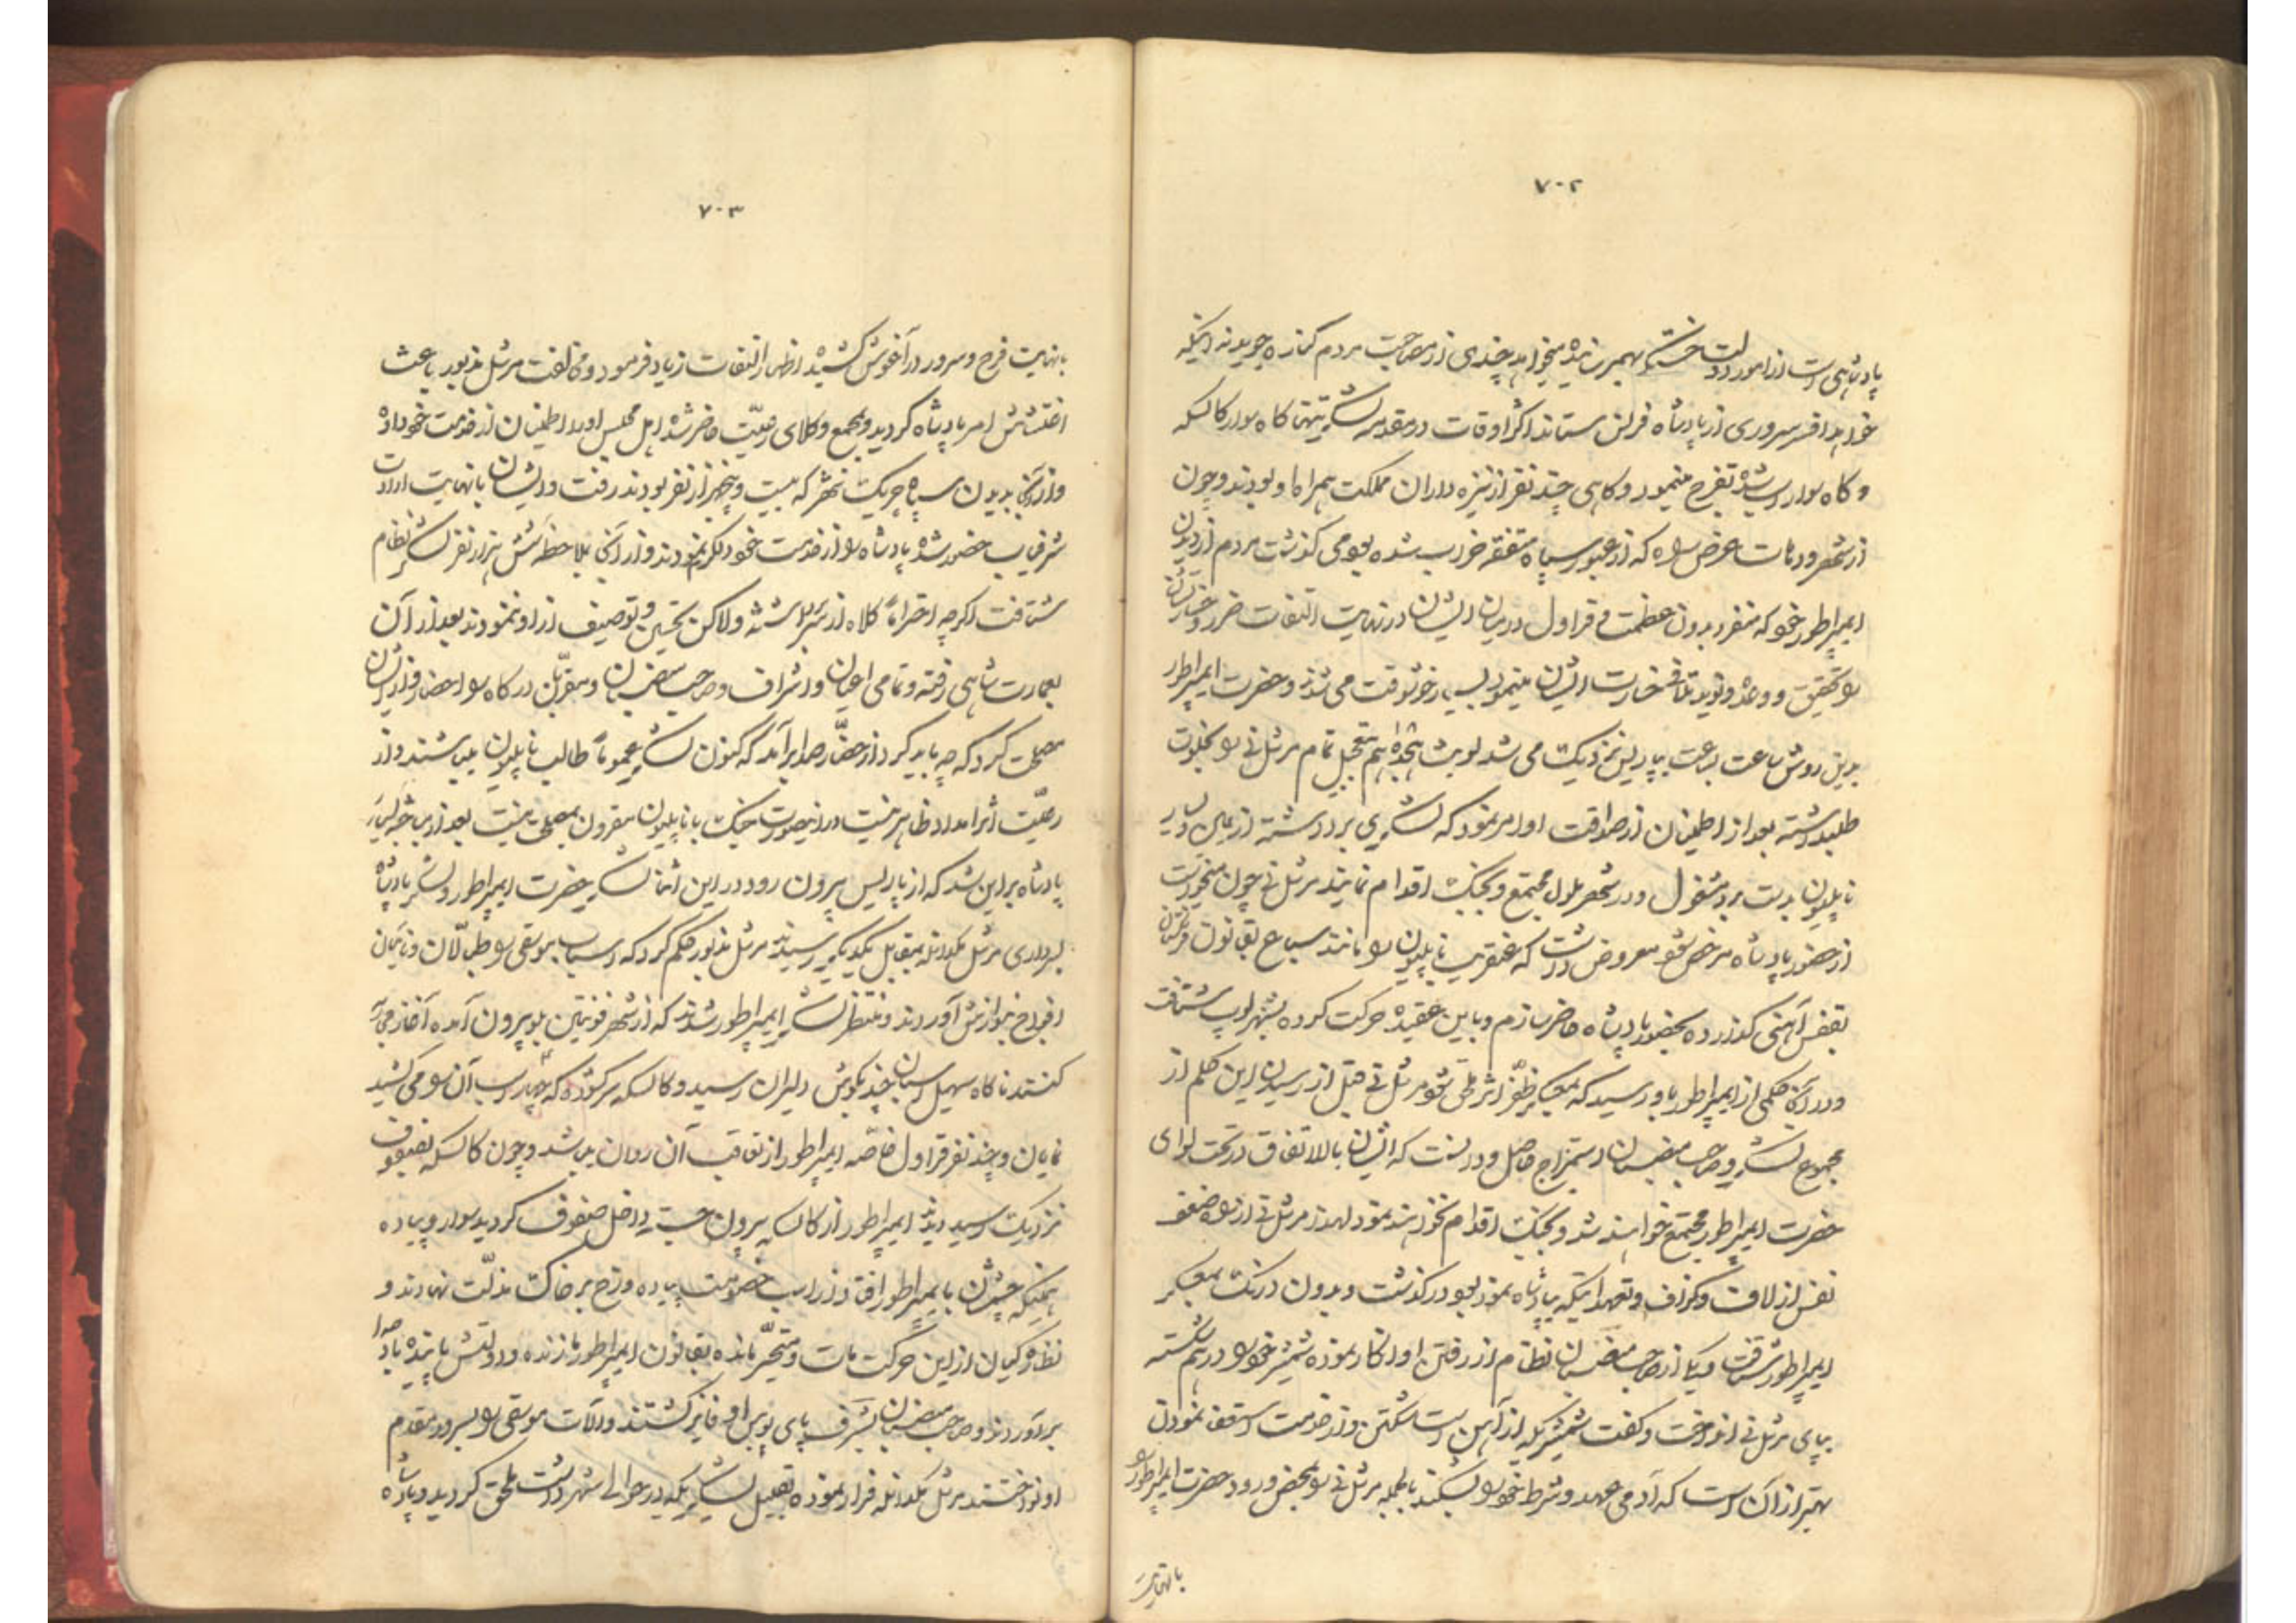 ۷۰۲
پادشاهی است از امور دولت خسته بهم رسانیده میخواهد چندی از مصاحبت مردم کناره جوید نه اینکه
خواهد افسر سروری از پادشاه فرانس ستاند اکثر اوقات در مقدمه لشکر تنها گاه سوار کالسکه
و گاه سوار اسب شده تفرج مینمود و گاهی چند نفر از نیزه داران مملکت همراه او بودند و چون
از شهر و دهات عرض راه که از عبور سپاه متفقه خراب شده بود می گذشت مردم از دیدن
ایمپراطور خود که منفرد بدون عظمت و قراول در میان ایشان در نهایت التفات ضرر و خسارتشان
را تحقیق و وعده و نوید تلافی خسارت ایشان مینمود بسیار خوشوقت می شدند و حضرت ایمپراطور
بدین روش ساعت بساعت بپاریس نزدیک می شد لویش هجدهم بتعجیل تمام مرشل نی را بخلوت
طلب داشته بعد از اطمینان از صداقت او امر نمود که لشکری برداشته از یمین و یسار
ناپلیون بدست برد مشغول و در شهر ملول مجتمع و بجنگ اقدام نمایند مرشل نی چون میخواست
از حضور پادشاه مرخص شود معروض داشت که عنقریب ناپلیون را مانند سباع بقانون فرنگستان
بقفس آهنی گذارده بحضور پادشاه حاضر سازم و باین عقیده حرکت کرده بشهر لوپ شتافت
و در آنجا حکمی از ایمپراطور باو رسید که بمعسکر ظفر اثر ملحق شود مرشل نی قبل از رسیدن این حکم از
مجموع لشکر و صاحب منصبان استمزاج حاصل و دانست که ایشان بالاتفاق در تحت لوای
حضرت ایمپراطور مجتمع خواهند شد و بجنگ اقدام نخواهند نمود لهذا مرشل نی از راه ضعف
نفس از لاف و گزاف و تعهداتیکه بپادشاه نموده بود در گذشت و بدون درنگ بمعسکر
ایمپراطور شتافت و یکی از صاحب منصبان نظام از رفتن او انکار نموده شمشیر خود را در هم شکسته
بپای مرشل نی انداخت و گفت شمشیریکه از آهن است شکستن و از خدمت استعفا نمودن
بهتر از آن است که آدمی عهد و شرط خود را بشکند بالجمله مرشل نی را بمحض ورود حضرت ایمپراطور
بانهایت
۷۰۳
بانهایت فرح و سرور در آغوش کشیده اظهار التفات زیاد فرمود و مخالفت مرشل مذبور باعث
اغتشاش امر پادشاه گردید و بمجمع وکلای رعیّت حاضر شده اهل مجلس او را اطمینان از خدمت خود داده
و از آنجا بدیدن سپاه چریک شهر که بیست و پنجهزار نفر بودند رفت و ایشان بانهایت ارادت
شرفیاب حضور شده پادشاه را از خدمت خود دلگرم نمودند و از آنجا بملاحظه شش هزار نفر لشکر نظام
شتافت اگرچه احتراماً کلاه از سر برداشته ولاکن تحسین و توصیف از او ننمودند بعد از آن
بعمارت شاهی رفته و تمامی اعیان و اشراف و صاحب منصبان و مقرّبان درگاه را احضار و از ایشان
مصلحت کرد که چه باید کرد از حضّار صدا برآمد که کنون لشکر عموماً طالب ناپلیون میباشند و از
رعیّت اثر امداد ظاهر نیست در اینصورت جنگ با ناپلیون مقرون بمصلحت نیست بعد از مباحثه بسیار
پادشاه بر این شد که از پاریس بیرون رود در این اثنا لشکر حضرت ایمپراطور و لشکر پادشاه
بسرداری مرشل مکدانلد بمقابل یکدیگر رسیدند مرشل مذبور حکم کرد که اسباب موسقی را طبّالان و نایچیان
افواج بنوازش آورند و منتظر لشکر ایمپراطور شدند که از شهر فونتین بلو بیرون آمده آغاز محاربه
کنند ناگاه سهیل اسبان چند بگوش دلیران رسید و کالسکه سرگشوده که چهار اسب آن را می کشید
نمایان و چند نفر قراول خاصّه ایمپراطور از تعاقب آن روان میباشد و چون کالسکه بصفوف
نزدیک رسید دیدند ایمپراطور از کالسکه بیرون جست داخل صفوف گردید سوار و پیاده
همینکه چشمشان بایمپراطور افتاد از اسب خصومت پیاده و رخ بر خاک مذلّت نهادند و
نظارگیان از این حرکت مات و متحیّر مانده بقانون ایمپراطور ما زنده و دولتش پاینده باد صدا
برآوردند و صاحب منصبان بشرف پای بوس او فایز گشتند و آلات موسقی را بسرور مقدم
او نواختند مرشل مکدانلد فرار نموده بتعجیل بلشکریکه در حوالی شهر داشت ملحق گردید و پادشاه